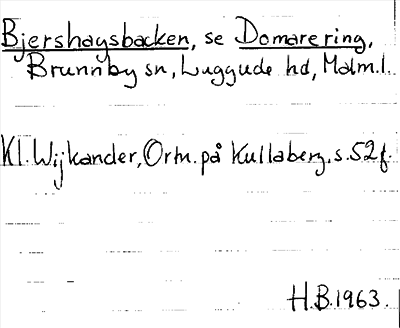 Bjershagsbacken, se Domarering,
Brunnby sn, Luggude hd, Malm.l.
Kl. Wijkander, Ortn. på Kullaberg, s. 52 f.
H.B. 1963.